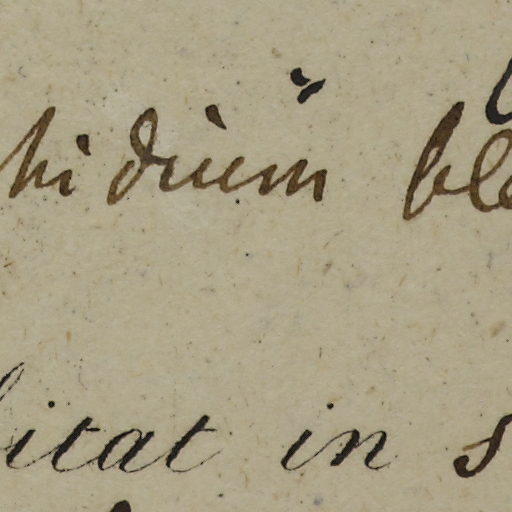 hidium ble
bitat in s